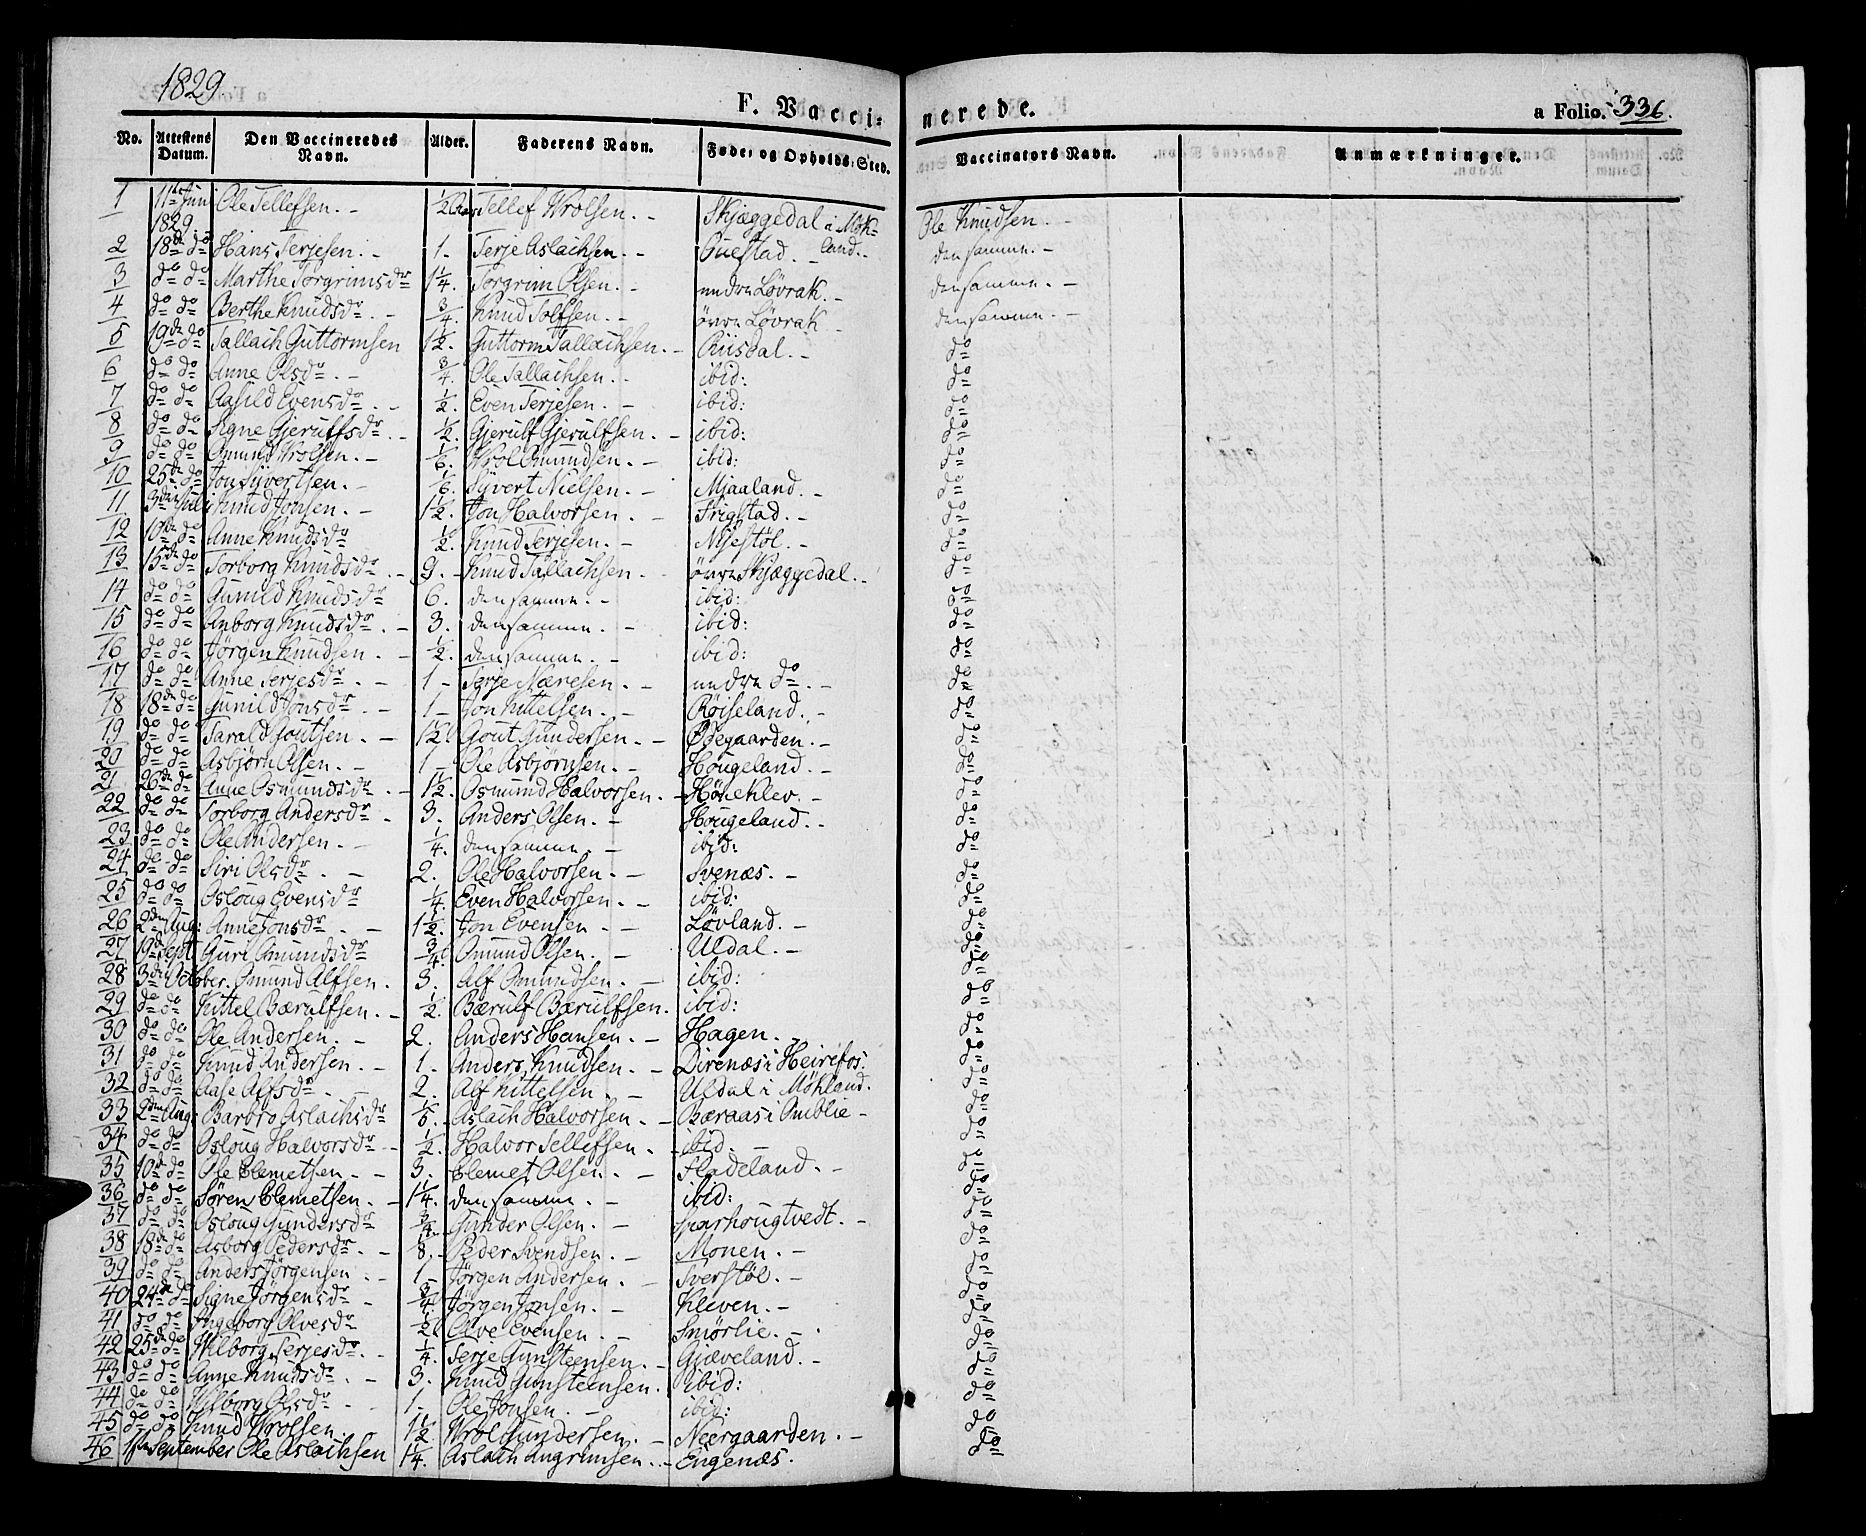 1829
F. Vacci= nerede. a Folio. 336.
No. Attestens Datum. Den Vaccineredes Navn. Alder. Faderens Navn. Føde- og Opholds-Sted. Vaccinators Navn. Anmærkninger.
1 11te Jun 1829 Ole Tellefsen. - 1/2 Aar Tellef Wrolsen. - Skjæggedal i Møhland. Ole Knudsen. -
2 18de do Hans Terjesen. - 1. Terje Aslachsen. - Ouestad. - densamme. -
3 do do Marthe Torgrimsdr 1 1/4. Torgrim Olsen. - nedre Løvrak. - densamme. -
4 do do Berthe Knudsdr. - 3/4 Knud Tolfsen. - øvre Løvrak - densamme. -
5 19de do Tallach Guttormsen 1 1/2. Guttorm Tallachsen. - Riisdal. - do
6 do do Anne Olsdr. - 3/4. Ole Tallachsen. - ibid: do
7 do do Aasild Evensdr. - 1/2. Even Terjesen. - ibid: do
8 do do Signe Gjerulfsdr. - 1/2. Gjerulf Gjerulfsen. - ibid: do
9 do do Omund Wrolsen. - 1/6. Wrol Omundsen. - ibid: do
10 25de do Jon Syvertsen. - 1/6. Syvert Nielsen. - Mjaaland. - do
11 3die Juli Knud Jonsen. - 1 1/2. Jon Halvorsen. - Frigstad. - do
12 10de do Anne Knudsdr 1/2. Knud Terjesen. - Nyestøl. - do
13 15de do Torborg Knudsdr. - 9. - Knud Tallachsen. øvre Skjæggedal. - do
14 do do Gunild Knudsdr 6. densamme. - ibid: do
15 do do Anborg Knudsdr. - 3. densamme. - ibid: do
16 do do Jørgen Knudsen. - 1/2. densamme. - ibid: do
17 do do Anne Terjesdr. - 1 - Terje Næresen. - nedre do. - do
18 18de do Gunild Jonsdr. - 1 - Jon Kittelsen. - Røiseland. - do
19 do do Tarald Goutsen. - 1 1/2. Gout Gundersen. - Ødegaarden. - do
20 do do Asbjørn Olsen. - 1 - Ole Asbjørnsen. - Hougeland. - do
21 26de do Anne Osmundsdr. - 1 1/2. Osmund Halvorsen. - Hønehlev. - do
22 do do Torborg Andersdr. - 3. Anders Olsen. - Hougeland. - do
23 do do Ole Andersen. - 1/4. densamme. - ibid: do
24 do do Siri Olsdr. - 2. Ole Halvorsen. - Svenæs. - do
25 do do Osloug Evensdr 1/4. Even Halvorsen. - ibid: do
26 2den Aug: Anne Jonsdr. - 1 1/2. Jon Evensen. - Løvland. - do
27 19de Sept. Guri Omundsdr 3/4. Omund Olsen. - Uldal. - do
28 3die October. Omund Alfsen. 3. Alf Omundsen. - ibid: do
29 do do Kittel Bærulfsen. - 1/2. Bærulf Bærulfsen. ibid: do
30 do do Ole Andersen. - 2. Anders Hansen. - Hagen. do
31 do do Knud Andersen. - 1. Anders Knudsen. - Direnæs i Heirefos. do
32 do do Aase Alfsdr. - 2. Alf Kittelsen. - Uldal i Møhland. do
33 2den Aug: Barbro Aslachsdr 1/5. Aslach Halvorsen. - Bæraas i Omblie - do
34 do do Osloug Halvorsdr - 1/2. Halvor Tellefsen. - ibid. - do
35 10de do Ole Clemetsen. - 3. Clemet Olsen. - Fladeland. - do
36 do do Søren Clemetsen. - 1 1/4. densamme. - ibid: do
37 do do Osloug Gundersdr 3/4. Gunder Olsen. - Sparhougtvedt. - do
38 18de do Asborg Pedersdr. - 8. - Peder Svendsen. - Monen. - do
39 do do Anders Jørgensen. - 1 - Jørgen Andersen. - Sverstøl. - do
40 24de do Signe Jørgensdr - 3/4. Jørgen Jonsen. - Kleven. - do
41 do do Ingeborg Olvesdr 1/2. Olve Evensen. - Smørlie. - do
42 25de do Wilborg Terjesdr. - 1/4. Terje Gunsteensen. - Gjæveland. - do
43 do do Anne Knudsdr. - 3. Knud Gunsteensen. ibid: do
44 do do Wilborg Olsdr - 1 - Ole Jonsen. - ibid: do
45 do do Knud Wrolsen. 1 1/2 Wrol Gundersen. - Neergaarden. - do
46 1ste September Ole Aslachsen 1 1/4. Aslach Angrimsen. - Eugenæs. do